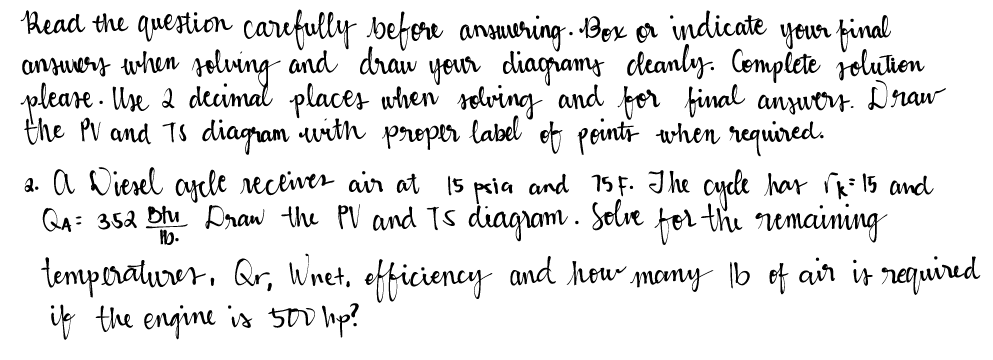 Read the question carefully before answering. Box or indicate your final
answers when solving and draw your diagrams cleanly. Complete solution
please. Use 2 decimal places when solving and for final answers. Draw
the PV and TS diagram with proper label of points when required.
2. A Diesel cycle receives air at 15 psia and 75 F. The cycle has rk = 15 and
QA = 352 Btu/lb. Draw the PV and TS diagram. Solve for the remaining
temperatures, Qr, Wnet, efficiency and how many lb of air is required
if the engine is 500 hp?